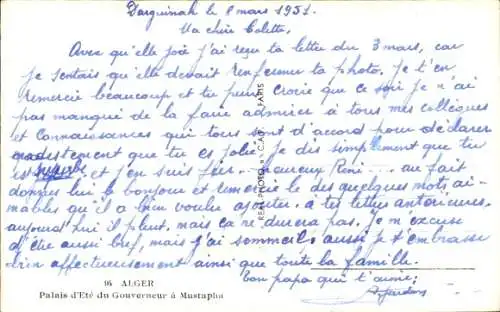 Darguinah le 8 mars 1951.
Ma chère Colette,
Avec qu'elle joie j'ai reçu ta lettre du 3 mars, car
je sentais qu'elle devait renfermer ta photo. Je t'en
remercie beaucoup et tu peux croire que ce soir je n'ai
pas manqué de la faire admirer à tous mes collègues
et connaissances qui tous sont d'accord pour déclarer
modestement que tu es jolie. Je dis simplement que tu
es et j'en suis fier. Heureux René... au fait
donnes lui le bonjour et remercie le des quelques mots ai-
mables qu'il a bien voulu ajouter à tes lettres antérieures.
aujourd'hui il pleut, mais ça ne durera pas. Je m'excuse
d'être aussi bref, mais j'ai sommeil aussi je t'embrasse
bien affectueusement ainsi que toute la famille.
ton papa qui t'aime:
96 ALGER
Palais d'Eté du Gouverneur à Mustapha
REAL-PHOTO C.A.P. PARIS